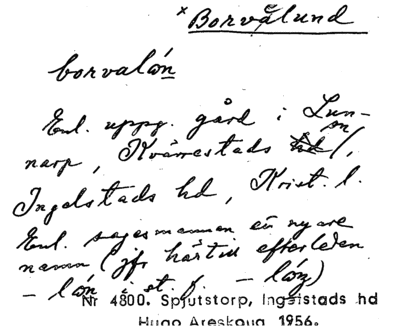 × Borvålund
borvalón
Enl. uppg. gård i Lun-
narp, Kvärrestads sn,
Ingelstads hd, Krist. l.
Enl. sagesmannen en nyare
namn (jfr härtill efterleden
– lón i st. f. – lǿn)
Nr 4800. Spjutstorp, Ingelstads hd
Hugo Areskoug 1956.